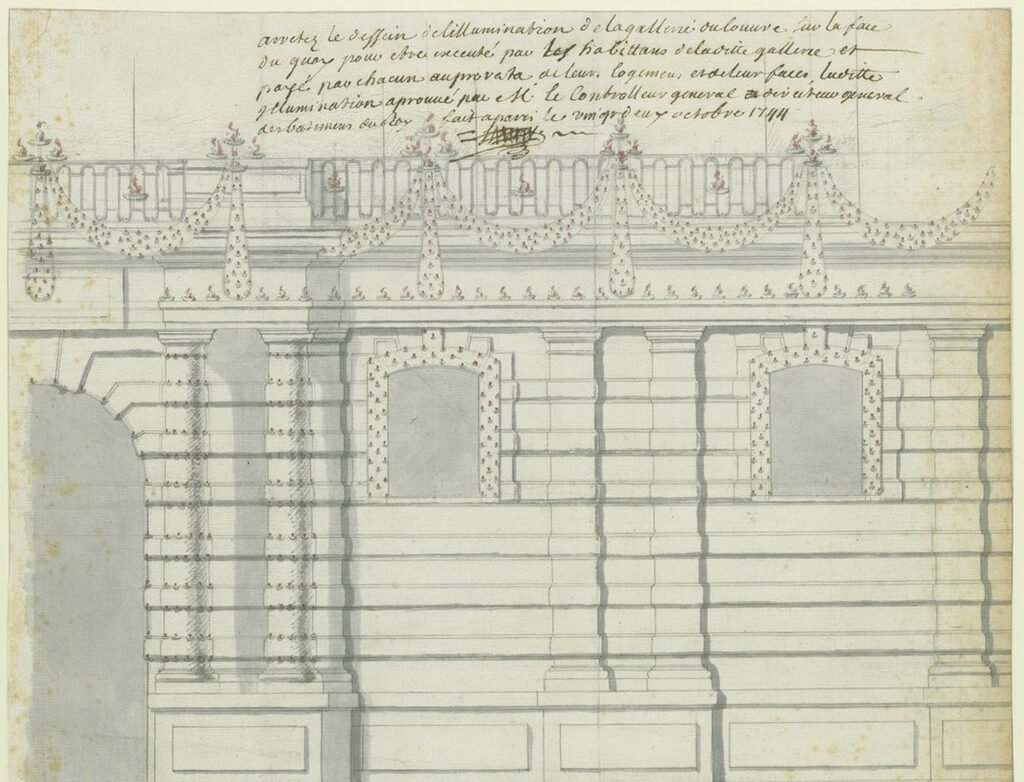 arretez le dessein de lillumination de la gallerie du louvre sur la face
du quay pour etre executé par les habittans de ladite gallerie et
payé par chacun au prorata de leurs logemens et de leur faces, laditte
Illumination aprouvé par Mr le Controlleur general directeur general
des batimens du Roy fait a paris le vingt deux octobre 1744